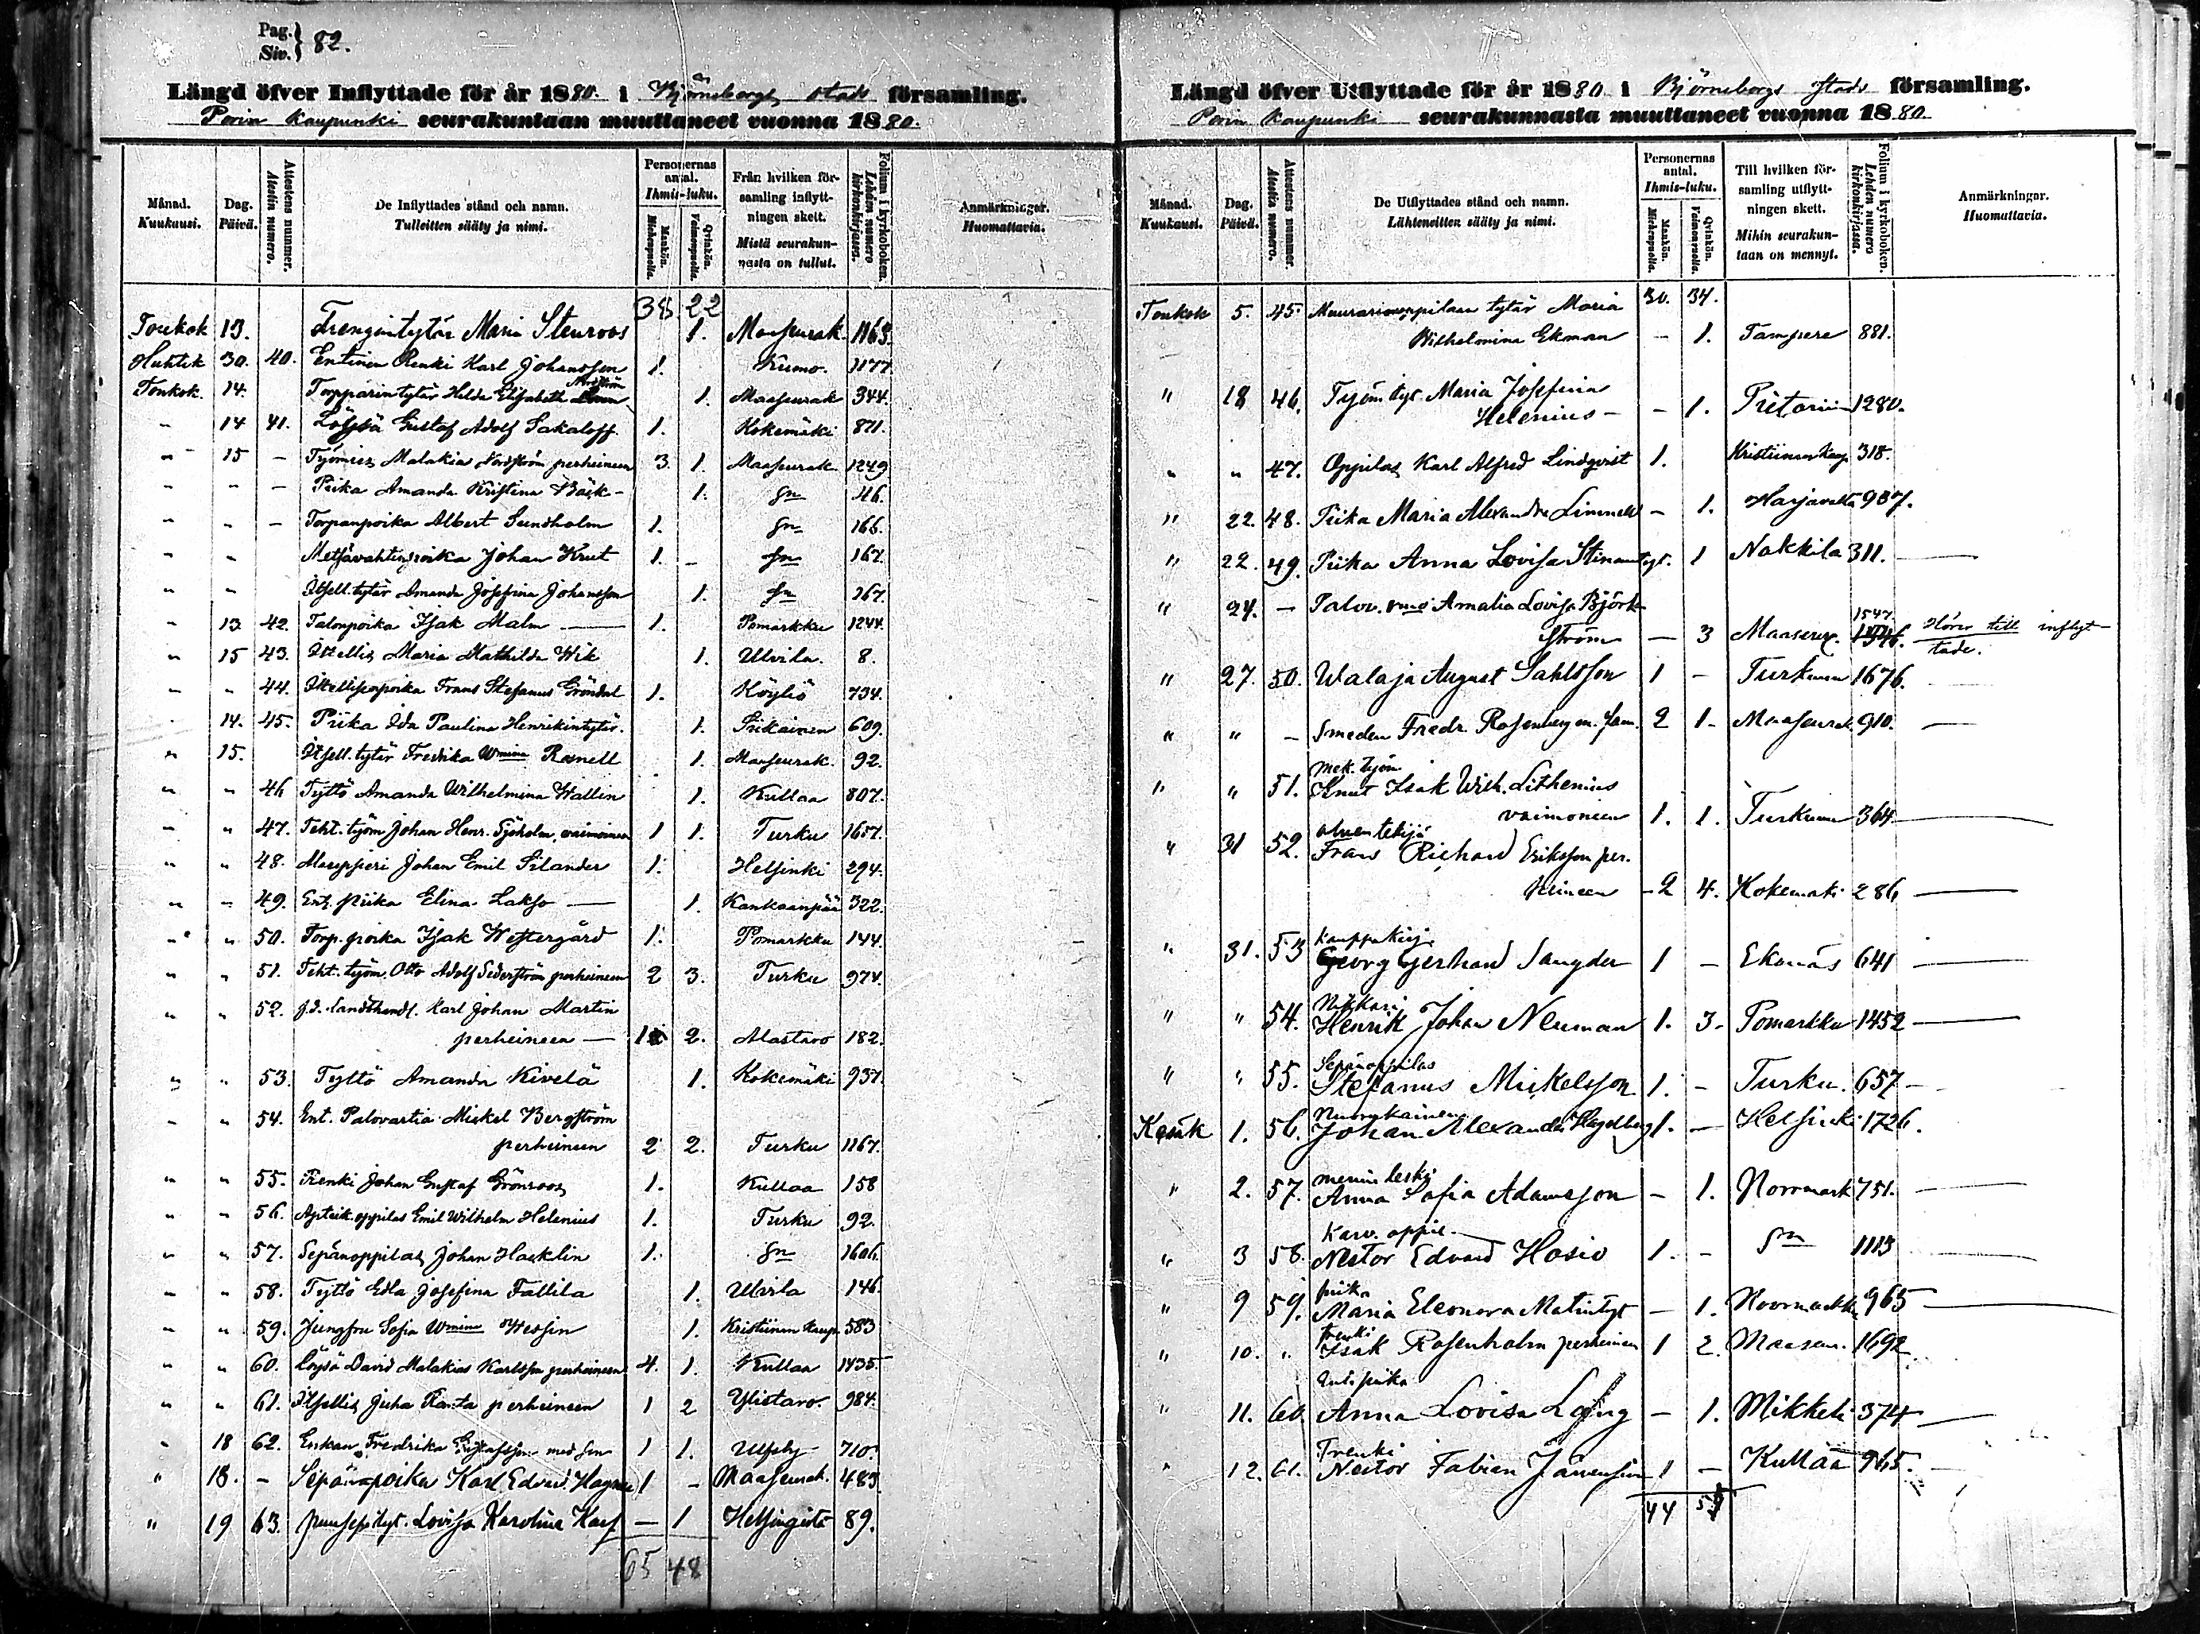 Pag. Siv. } 82.
Längd öfver Inflyttade för år 1880. i Björneborgs stads församling.
Porin kaupunki seurakuntaan muuttaneet vuonna 1880.
Månad. Kuukausi.
Dag. Päivä.
Attestens nummer. Atestin numero.
De Inflyttades stånd och namn. Tulleitten sääty ja nimi.
Personernas antal. Ihmis-luku.
Mankön. Miehenpuolia.
Qvinkön. Vaimonpuolia.
Från hvilken församling inflyttningen skett. Mistä seurakunnasta on tullut.
Folium i kyrkoboken. Lehden numero kirkonkirjassa.
Anmärkningar. Huomattavia.
38 22
Toukok 13. Trengintytär Maria Stenroos 1. Maaseurak. 1163.
Huhtik 30. 40. Entinen Renki Karl Johansson 1. Kumo. 1177
Toukok. 14. Torpparin tytär Hilda Elisabeth Nordström 1. Maaseurak 344.
" 14 41. Löysä Gustaf Adolf Sakaloff 1. Kokemäki 871.
" 15 — Työmies Malakia Nordström perheineen 3 1. Maaseurak 1249
" " — Piika Amanda Kristina Bäck — 1. sn 116.
" " — Torpanpoika Albert Sundholm 1. sn 166.
" " Metsävahtinpoika Johan Krut 1. — sn 167.
" " Itsell. tytär Amanda Josefina Johansson 1. sn 267.
" 13 42. Talonpoika Isak Malm — 1. Pomarkku 1244.
" 15 43. Itsellis Maria Mathilda Wik 1. Ulvila. 8.
" " 44. Itsellisenpoika Frans Stefanus Gröndal 1. Köyliö 734.
" 14. 45. Piika Ida Paulina Henrikintytär. 1. Siikainen 609.
" 15. Itsell. tytär Fredrika Wmina Renell 1. Maaseurak. 92.
" " 46 Tyttö Amanda Wilhelmina Wallin 1. Kullaa 807.
" " 47. Teht. työm. Johan Henr. Sjöholm, vaimoineen 1 1. Turku 1657.
" " 48. Johan Emil Silander 1. Helsinki 294.
" " 49. Ent. piika Elina Lakso — 1. Kankaanpää 322.
" " 50. Torp. poika Isak Westergård 1. Pomarkku 144.
" " 51. Teht. työm. Otto Adolf Sederström perheineen 2 3. Turku 974.
" " 52. f.d. landthandl. Karl Johan Martin
perheineen — 1 2. Alastaro 182.
" " 53. Tyttö Amanda Kivelä 1. Kokemäki 937.
" " 54. Ent. Palovartia Mickel Bergström
perheineen 2 2. Turku 1167.
" " 55. Renki Johan Gustaf Grönroos 1. Kullaa 158
" " 56. Apteik. oppilas Emil Wilhelm Helenius 1. Turku 92.
" " 57. Sepänoppilas Johan Hacklin 1. sn 1606.
" " 58. Tyttö Edla Josefina Fallila 1. Ulvila 146.
" " 59. Jungfru Sofia Wmina Wessin 1. Kristiinan kaup. 583
" " 60. Löysä David Malakias Karlsson perheineen 4. 1. Kullaa 1435.
" " 61. Itsellis Juha Ranta perheineen 1 2 Ylistaro. 984.
" 18 62. Enkan Fredrika Gustafsson med son 1 1. Ulfsby 710.
" 18. — Sepänpoika Karl Edvard 1 — Maaseurak. 483.
" 19 63. Lovisa Karolina — 1 Helsingistä 89.
65 48
Längd öfver Utflyttade för år 1880 i Björneborgs stads församling.
Porin kaupunki seurakunnasta muuttaneet vuonna 1880.
Månad. Kuukausi.
Dag. Päivä.
Attestens nummer. Atestin numero.
De Utflyttades stånd och namn. Lähteneitten sääty ja nimi.
Personernas antal. Ihmis-luku.
Mankön. Miehenpuolia.
Qvinkön. Vaimonpuolia.
Till hvilken församling utflyttningen skett. Mihin seurakuntaan on mennyt.
Folium i kyrkoboken. Lehden numero kirkonkirjassa.
Anmärkningar. Huomattavia.
30. 34.
Toukok 5. 45. Muurarinoppilaan tytär Maria
Wilhelmina Ekman — 1. Tampere 881.
" 18 46. Työm. tyt. Maria Josefina
Helenius — — 1. Pietariin 1280.
" " 47. Oppilas Karl Alfred Lindqvist 1. Kristiinan kaup 318.
" 22. 48. Piika Maria Alexandra — 1. Harjavalta 987.
" 22. 49. Piika Anna Lovisa 1 Nakkila 311. —
" 24. — Amalia Lovisa Björk-
ström — 3 Maaseur. 1547. 1546. Hörer till inflyt-
tade.
" 27. 50. Walaja August Sahlsson 1 — Turkuun 1676.
" " — Smeden Fredr. Rosenberg m. fam. 2 1. Maaseurak 910. —
" " 51. Mek. työm.
Knut Isak Wilh. Lithenius
vaimoneen 1. 1. Turkuun 364. —
" 31 52. oluentekijä
Frans Richard Eriksson per-
heineen — 2 4. Kokemäki 286 —
" 31. 53 kauppakirj.
Georg Gerhard 1 — Ekenäs 641 —
" " 54. Nikkari
Henrik Johan Neuman 1. 3. Pomarkku 1452 —
" " 55. Sepänoppilas
Stefanus Mickelsson 1. — Turku. 657 —
Kesäk 1. 56. Nuorukainen
Johan Alexander Hagelberg 1. — Helsinki 1726.
" 2. 57. leski
Anna Sofia Adamsson — 1. Norrmark 751. —
" 3 58. Karv. oppil.
Nestor Edvard Hosio 1. — sn 1113 —
" 9 59. piika
Maria Eleonora Matintyt — 1. Noormarkku 965 —
" 10. " trenki
Isak Rosenholm perheineen 1 2. Maaseur. 1692
" 11. 60. Ent. piika
Anna Lovisa Lång — 1. Mikkeli 374 —
" 12. 61. Trenki
Nestor Fabian 1 — Kullaa 965. —
44 51